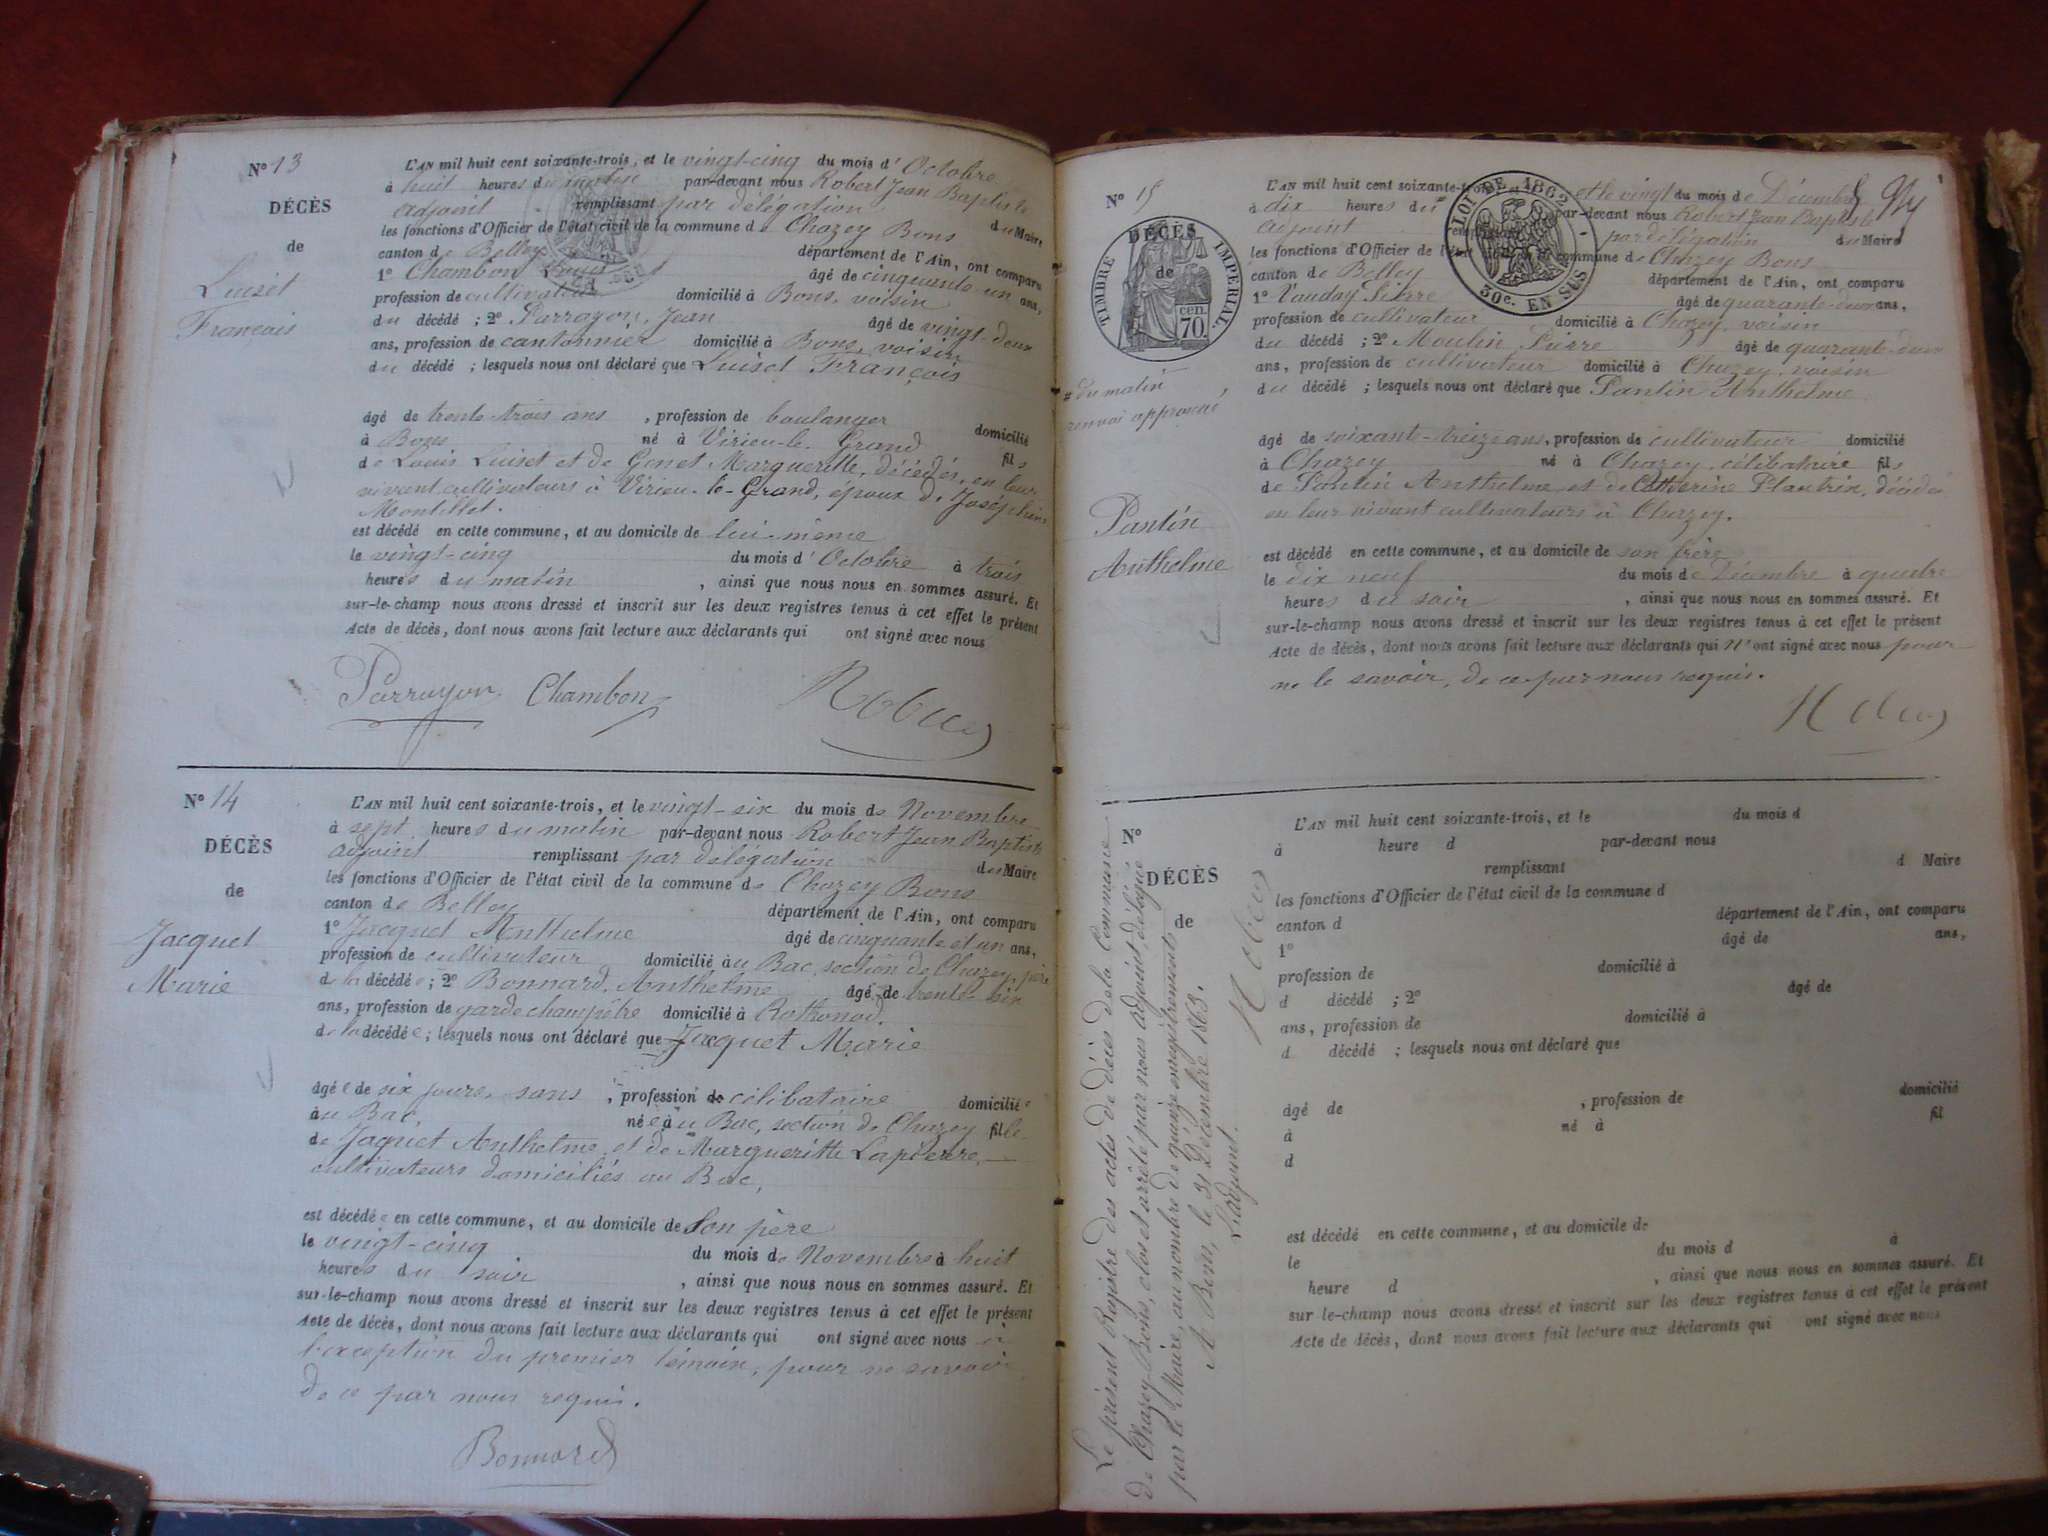 N° 13
DÉCÈS
de
Luiset
François
L'AN mil huit cent soixante-trois, et le vingt-cinq du mois d'Octobre
à huit heures du matin par-devant nous Robert Jean Baptiste
adjoint remplissant par délégation du Maire
les fonctions d'Officier de l'état civil de la commune de Chazey Bons
canton de Belley département de l'Ain, ont comparu
1° Chambon Louis âgé de cinquante-un ans,
profession de cultivateur domicilié à Bons, voisin
du décédé ; 2° Parrayon, Jean âgé de vingt-deux
ans, profession de cantonnier domicilié à Bons, voisin
du décédé ; lesquels nous ont déclaré que Luiset François
âgé de trente-trois ans, profession de boulanger domicilié
à Bons né à Virieu-le-Grand fils
de Louis Luiset et de Genet Margueritte, décédés, en leur
vivant cultivateurs à Virieu-le-Grand, époux de Joséphine
Montillet.
est décédé en cette commune, et au domicile de lui-même
le vingt-cinq du mois d'Octobre à trois
heures du matin, ainsi que nous nous en sommes assuré. Et
sur-le-champ nous avons dressé et inscrit sur les deux registres tenus à cet effet le présent
Acte de décès, dont nous avons fait lecture aux déclarants qui ont signé avec nous
Parrayon Chambon Robert
N° 14
DÉCÈS
de
Jacquet
Marie
L'AN mil huit cent soixante-trois, et le vingt-six du mois de Novembre
à sept heures du matin par-devant nous Robert Jean Baptiste
adjoint remplissant par délégation du Maire
les fonctions d'Officier de l'état civil de la commune de Chazey Bons
canton de Belley département de l'Ain, ont comparu
1° Jacquet Anthelme âgé de cinquante et un ans,
profession de cultivateur domicilié au Bac, section de Chazey, père
de la décédée ; 2° Bonnard, Anthelme âgé de trente six
ans, profession de garde champêtre domicilié à Rothonod,
de la décédée ; lesquels nous ont déclaré que Jacquet Marie
âgée de six jours, sans, profession de célibataire domiciliée
au Bac, née au Bac, section de Chazey fille
de Jaquet Anthelme et de Margueritte Lapierre,
cultivateurs domiciliés au Bac,
est décédée en cette commune, et au domicile de son père
le vingt-cinq du mois de Novembre à huit
heures du soir, ainsi que nous nous en sommes assuré. Et
sur-le-champ nous avons dressé et inscrit sur les deux registres tenus à cet effet le présent
Acte de décès, dont nous avons fait lecture aux déclarants qui ont signé avec nous à
l'exception du premier témoin, pour ne savoir
de ce par nous requis.
Bonnard
N° 15
TIMBRE IMPÉRIAL
70 cen.
DÉCÈS
de
# du matin
renvoi approuvé
Pantin
Anthelme
LOI DE 1862
30c. EN SUS
L'AN mil huit cent soixante-trois et le vingt du mois de Décembre
à dix heures du # par-devant nous Robert Jean Baptiste
adjoint remplissant par délégation du Maire
les fonctions d'Officier de l'état civil de la commune de Chazey Bons
canton de Belley département de l'Ain, ont comparu
1° Vauday Pierre âgé de quarante-deux ans,
profession de cultivateur domicilié à Chazey, voisin
du décédé ; 2° Moulin Pierre âgé de quarante-deux
ans, profession de cultivateur domicilié à Chazey, voisin
du décédé ; lesquels nous ont déclaré que Pantin Anthelme
âgé de soixante-treize ans, profession de cultivateur domicilié
à Chazey né à Chazey, célibataire fils
de Pantin Anthelme et de Catherine Plantin, décédés
en leur vivant cultivateurs à Chazey.
est décédé en cette commune, et au domicile de son frère
le dix neuf du mois de Décembre à quatre
heures du soir, ainsi que nous nous en sommes assuré. Et
sur-le-champ nous avons dressé et inscrit sur les deux registres tenus à cet effet le présent
Acte de décès, dont nous avons fait lecture aux déclarants qui n'ont signé avec nous pour
ne le savoir, de ce par nous requis.
Robert
N°
DÉCÈS
de
L'AN mil huit cent soixante-trois, et le du mois d
à heure d par-devant nous
remplissant d Maire
les fonctions d'Officier de l'état civil de la commune d
canton d département de l'Ain, ont comparu
1° âgé de ans,
profession de domicilié à
d décédé ; 2° âgé de
ans, profession de domicilié à
d décédé ; lesquels nous ont déclaré que
âgé de , profession de domicilié
à né à fil
d
est décédé en cette commune, et au domicile de
le du mois d à
heure d , ainsi que nous nous en sommes assuré. Et
sur le-champ nous avons dressé et inscrit sur les deux registres tenus à cet effet le présent
Acte de décès, dont nous avons fait lecture aux déclarants qui ont signé avec nous
Le présent Registre des actes de décès de la Commune
de Chazey-Bons, clos et arrêté par nous adjoint, délégué
par le Maire, au nombre de quinze enregistrements,
A Bons, le 31 Décembre 1863.
L'adjoint.
Robert